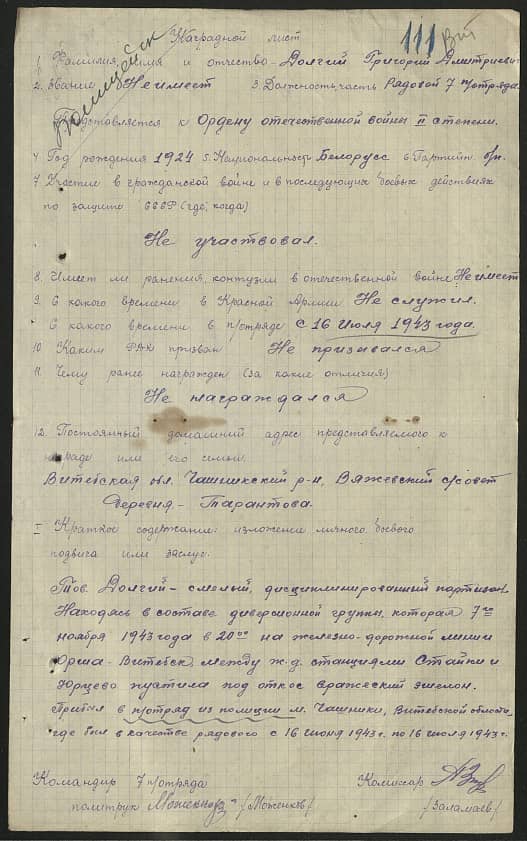 Наградной лист
111
Полицейск
1. Фамилия, имя и отчество - Долгий Григорий Дмитриевич
2. Звание Не имеет 3. Должность, часть Рядовой 7 п/отряда.
Представляется к Ордену отечественной войны II степени.
4. Год рождения 1924 5. Национальность Белорусс 6. Партийн. б/п.
7. Участие в гражданской войне и в последующих боевых действиях
по защите СССР (где, когда)
Не участвовал.
8. Имеет ли ранения, контузии в отечественной войне Не имеет
9. С какого времени в Красной Армии Не служил.
С какого времени в п/отряде с 16 июля 1943 года.
10. Каким РВК призван Не призывался
11. Чему ранее награжден (за какие отличия)
Не награждался
12. Постоянный домашний адрес представляемого к
награде или его семьи.
Витебская обл. Чашникский р-н, Вяжевский с/совет
деревня - Тарантова.
I Краткое содержание: изложение личного боевого
подвига или заслуг.
Тов. Долгий - смелый, дисциплинированный партизан.
Находясь в составе диверсионной группы, которая 7го
ноября 1943 года в 20 00 на железно-дорожной линии
Орша-Витебск, между ж.д. станциями Стайки и
Юрцево пустила под откос вражеский эшелон.
Прибыл в п/отряд из полиции м. Чашники, Витебской области,
где был в качестве рядового с 16 июня 1943 г. по 16 июля 1943 г.
Командир 7 п/отряда Комиссар
политрук /Моженков/ /Заламаев/